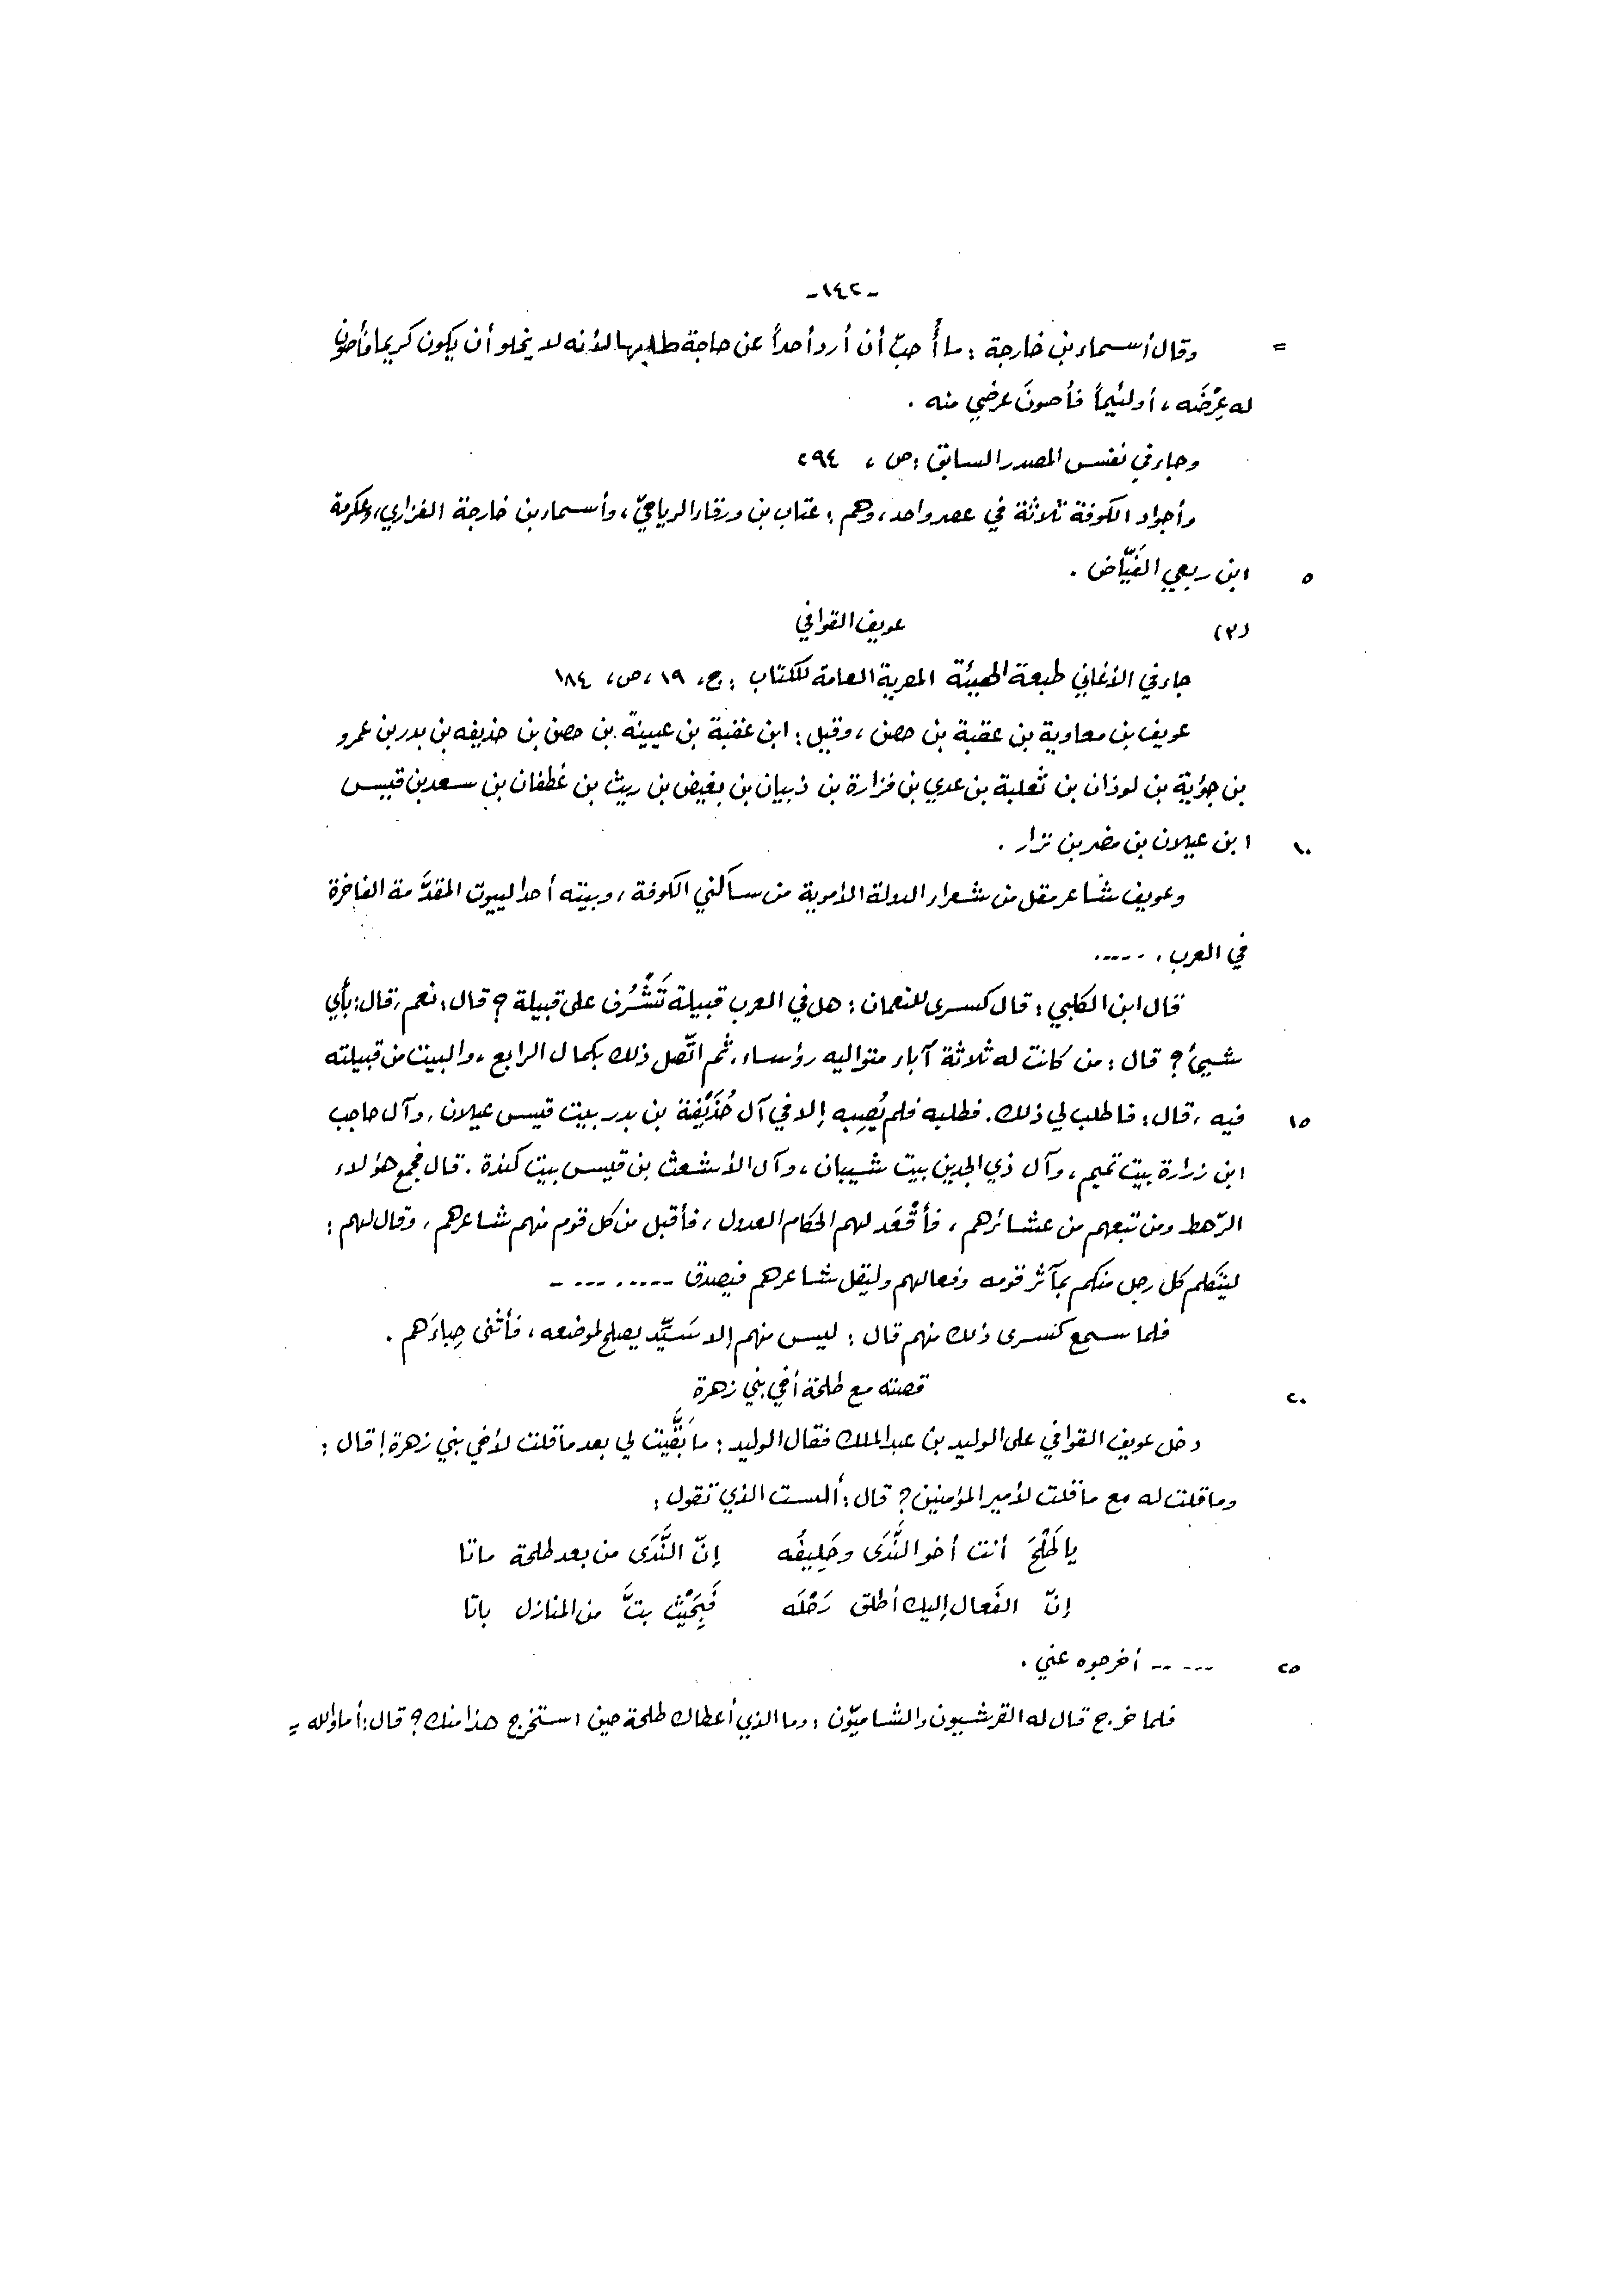 -١٤٢-
= وقال أسماء بن خارجة : ما أُحبّ أن أرد أحداً عن حاجة طلبها لأنه لا يخلو أن يكون كريما فأصون
له عِرْضَه ، أو لئيماً فأصونَ عرضي منه .
وجاء في نفس المصدر السابق : ص ، ٢٩٤
وأجواد الكوفة ثلاثة في عصر واحد ، وهم : عتاب بن ورقاء الرياحيّ ، وأسماء بن خارجة الفزاري ، وعكرمة
٥ ابن ربعي الفَيَّاض .
(٣) عويف القوافي
جاء في الأغاني طبعة الهيئة المصرية العامة للكتاب : ج ، ١٩ ، ص ، ١٨٤
عويف بن معاوية بن عقبة بن حصن ، وقيل : ابن عقبة بن عيينة بن حصن بن حذيفه بن بدر بن عمرو
بن جؤية بن لوذان بن ثعلبة بن عدي بن فزارة بن ذبيان بن بغيض بن ريث بن غطفان بن سعد بن قيس
١٠ ابن عيلان بن مضر بن نزار .
وعويف شاعر مقل من شعراء الدولة الأموية من ساكني الكوفة ، وبيته أحد البيوت المقدَّمة الفاخرة
في العرب . .....
قال ابن الكلبي : قال كسرى للنعمان : هل في العرب قبيلة تَشْرُف على قبيلة ؟ قال : نعم ، قال : بأَي
شيئ ؟ قال : من كانت له ثلاثة آباء متواليه رؤساء ، ثم اتّصل ذلك بكمال الرابع ، والبيت من قبيلته
١٥ فيه ، قال : فاطلب لي ذلك . فطلبه فلم يُصِبه إلا في آل حُذَيْفة بن بدر بيت قيس عيلان ، وآل حاجب
ابن زرارة بيت تميم ، وآل ذي الجدين بيت شيبان ، وآل الأشعث بن قيس بيت كندة . قال فجمع هؤلاء
الرّهط ومن تبعهم من عشائرهم ، فأقْعَد لهم الحكام العدول ، فأقبل من كل قوم منهم شاعرهم ، وقال لهم :
ليتكلم كل رجل منكم بمآثر قومه وفعالهم وليقل شاعرهم فيصدق ---------
فلما سمع كسرى ذلك منهم قال : ليس منهم إلا سَيِّد يصلح لموضعه ، فأثنى حِباءَهم .
٢٠ قصته مع طلحة أخي بني زهرة
دخل عويف القوافي على الوليد بن عبد الملك فقال الوليد : ما بَقَّيت لي بعد ما قلت لأخي بني زهرة ! قال :
وما قلت له مع ما قلت لأمير المؤمنين ؟ قال : ألست الذي تقول :
يا طَلْحَ أنت أخو النَّدَى وحَلِيفُه إنّ النَّدَى من بعد طلحة ماتا
إنّ الفَعال إليك أطلق رَحْلَه فَبِحَيْث بتَّ من المنازل باتا
٢٥ ----- أخرجوه عني .
فلما خرج قال له القرشيون والشاميّون : وما الذي أعطاك طلحة حين استخرج هذا منك ؟ قال : أما والله =